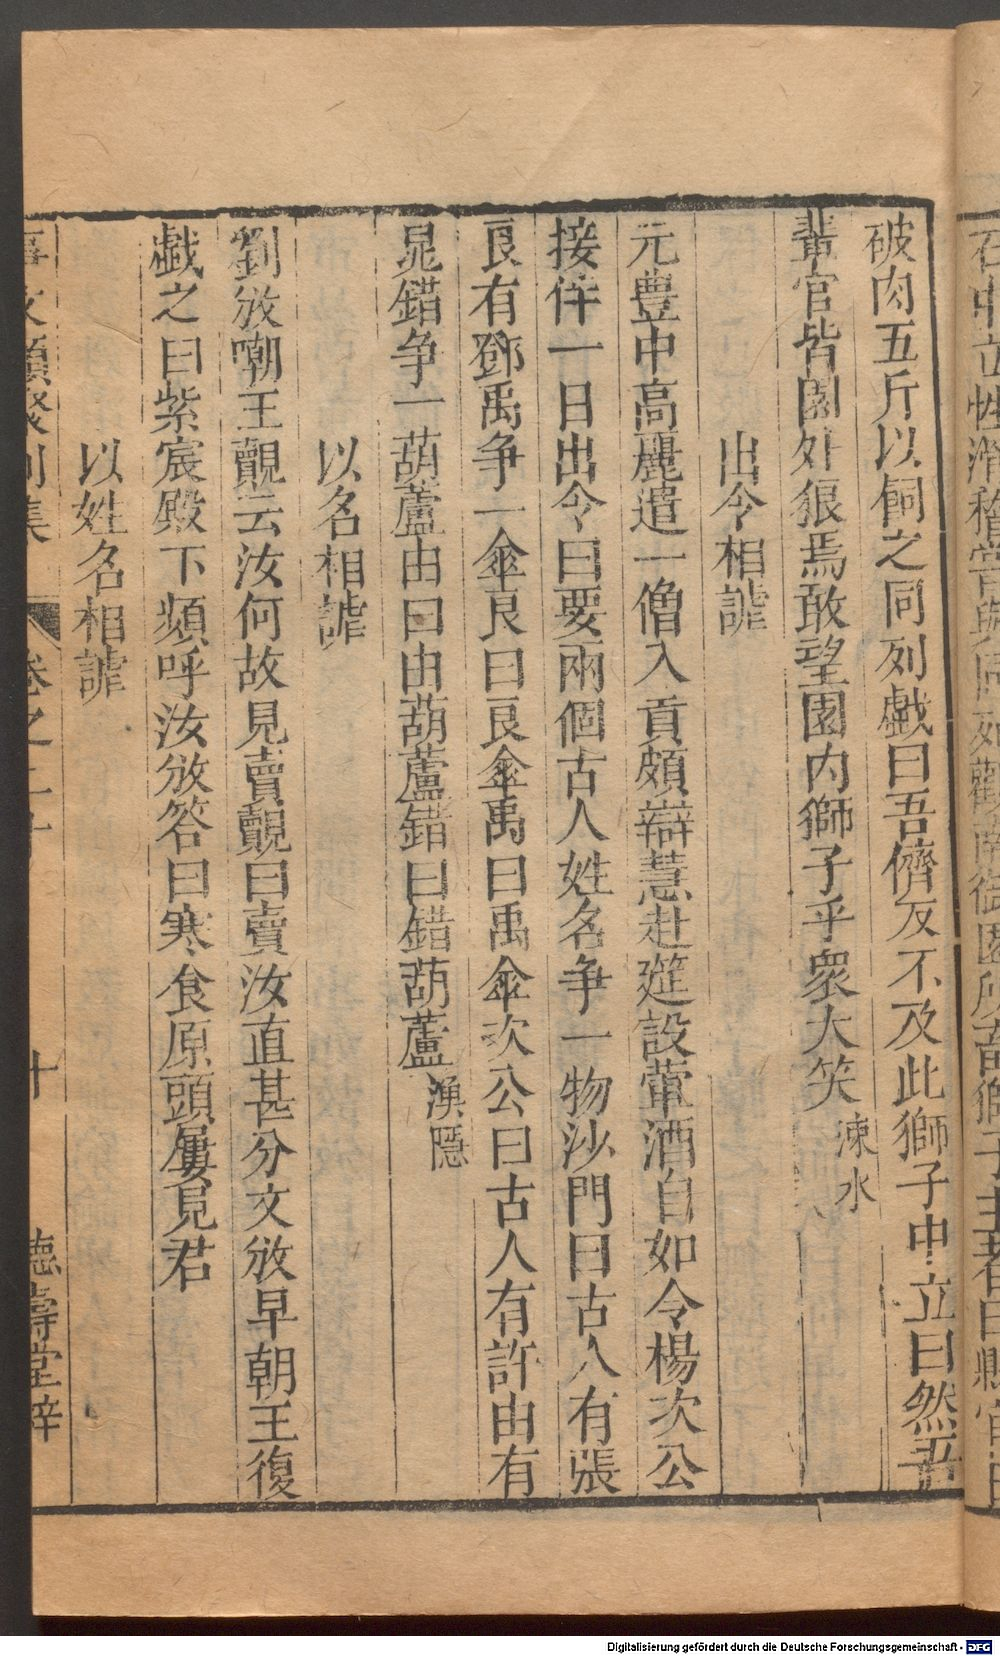 石中立性滑稽嘗與同列觀南御園所畜獅子主者曰縣官日
破肉五斤以飼之同列戯曰吾儕反不及此獅子中立曰然吾
輩官皆園外狼焉敢望園内獅子乎衆大笑 涑水
出令相謔
元豊中高麗遣一僧入貢頗辯慧赴筵設葷酒自如令楊次公
接伴一日出令曰要兩個古人姓名争一物沙門曰古人有張
良有鄧禹争一傘良曰良傘禹曰禹傘次公曰古人有許由有
晁錯争一葫蘆由曰由葫蘆錯曰錯葫蘆 漁隱
以名相謔
劉攽嘲王覿云汝何故見賣覿曰賣汝直甚分文攽早朝王復
戯之曰紫宸殿下頻呼汝攽答曰寒食原頭屢見君
以姓名相謔
事文類聚别集 卷之二十 十 德壽堂梓
Digitalisierung gefördert durch die Deutsche Forschungsgemeinschaft - DFG